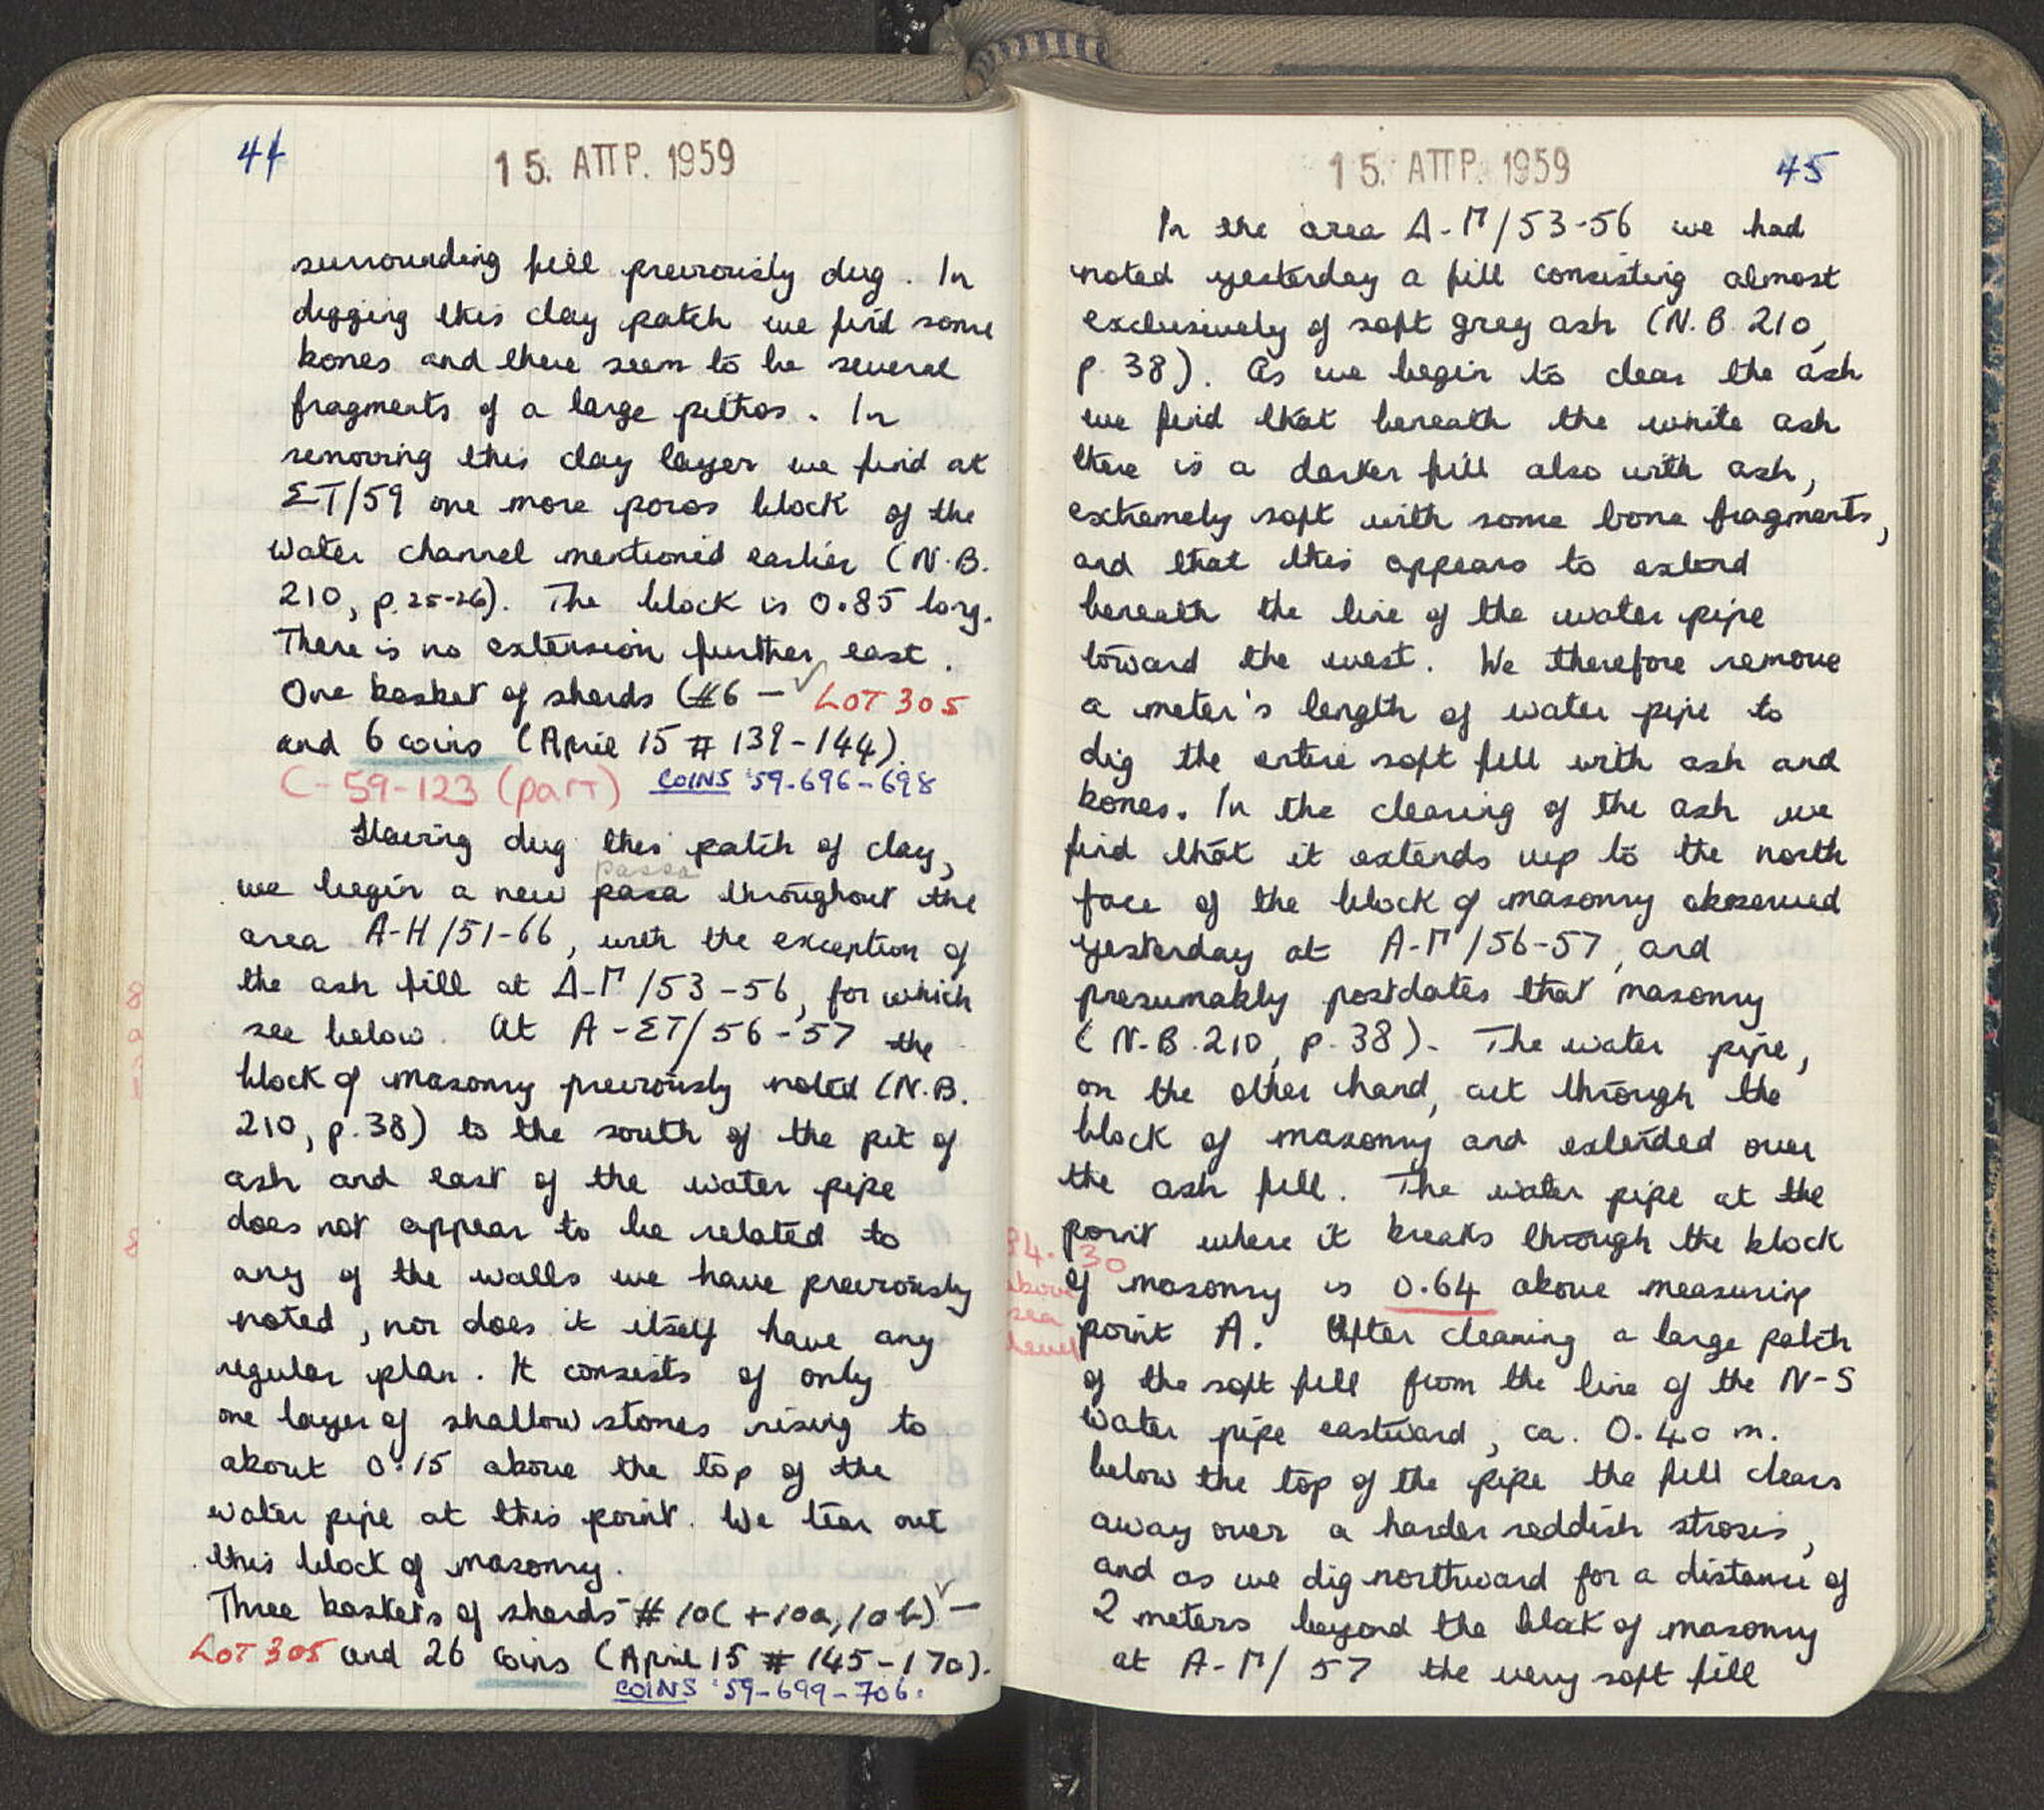 44
15. ΑΠΡ. 1959
surrounding fill previously dug. In
digging this clay patch we find some
bones and there seem to be several
fragments of a large pithos. In
removing this clay layer we find at
ΣΤ/59 one more poros block of the
water channel mentioned earlier (N.B.
210, p.25-26). The block is 0.85 long.
There is no extension further east.
One basket of sherds (#6 — ✓ LOT 305
and 6 coins (April 15 # 139-144).
C-59-123 (part) COINS '59-696-698
Having dug this patch of clay,
passa
we begin a new pasa throughout the
area A-H/51-66, with the exception of
the ash fill at Δ-Γ/53-56, for which
see below. At A-ΣΤ/56-57 the
block of masonry previously noted (N.B.
210, p.38) to the south of the pit of
ash and east of the water pipe
does not appear to be related to
any of the walls we have previously
noted, nor does it itself have any
regular plan. It consists of only
one layer of shallow stones rising to
about 0.15 above the top of the
water pipe at this point. We tear out
this block of masonry.
Three baskets of sherds # 10(+10a,10b) ✓ —
LOT 305 and 26 coins (April 15 # 145-170).
COINS '59-699-706.
15. ΑΠΡ. 1959
45
In the area Δ-Γ/53-56 we had
noted yesterday a fill consisting almost
exclusively of soft grey ash (N.B. 210,
p. 38). As we begin to clear the ash
we find that beneath the white ash
there is a darker fill also with ash,
extremely soft with some bone fragments,
and that this appears to extend
beneath the line of the water pipe
toward the west. We therefore remove
a meter's length of water pipe to
dig the entire soft fill with ash and
bones. In the clearing of the ash we
find that it extends up to the north
face of the block of masonry observed
yesterday at A-Γ/56-57, and
presumably postdates that masonry
(N.B. 210, p. 38). The water pipe,
on the other hand, cut through the
block of masonry and extended over
the ash fill. The water pipe at the
point where it breaks through the block
of masonry is 0.64 above measuring
84.30
above
sea
level
point A. After cleaning a large patch
of the soft fill from the line of the N-S
water pipe eastward, ca. 0.40 m.
below the top of the pipe the fill clears
away over a harder reddish strosis,
and as we dig northward for a distance of
2 meters beyond the block of masonry
at A-Γ/57 the very soft fill